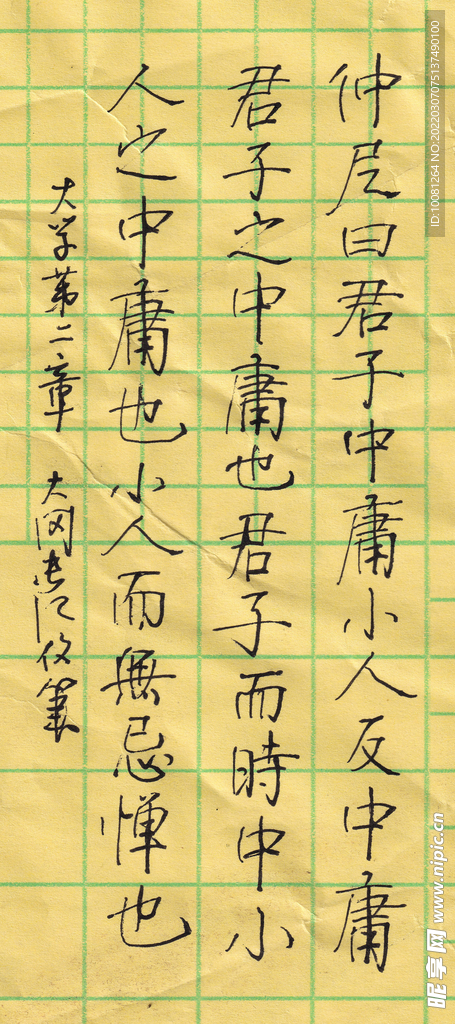 仲尼曰君子中庸小人反中庸
君子之中庸也君子而時中小
人之中庸也小人而無忌惮也
大学第二章 大冈
ID:10081264 NO:20220307075137490100
昵享网 www.nipic.cn